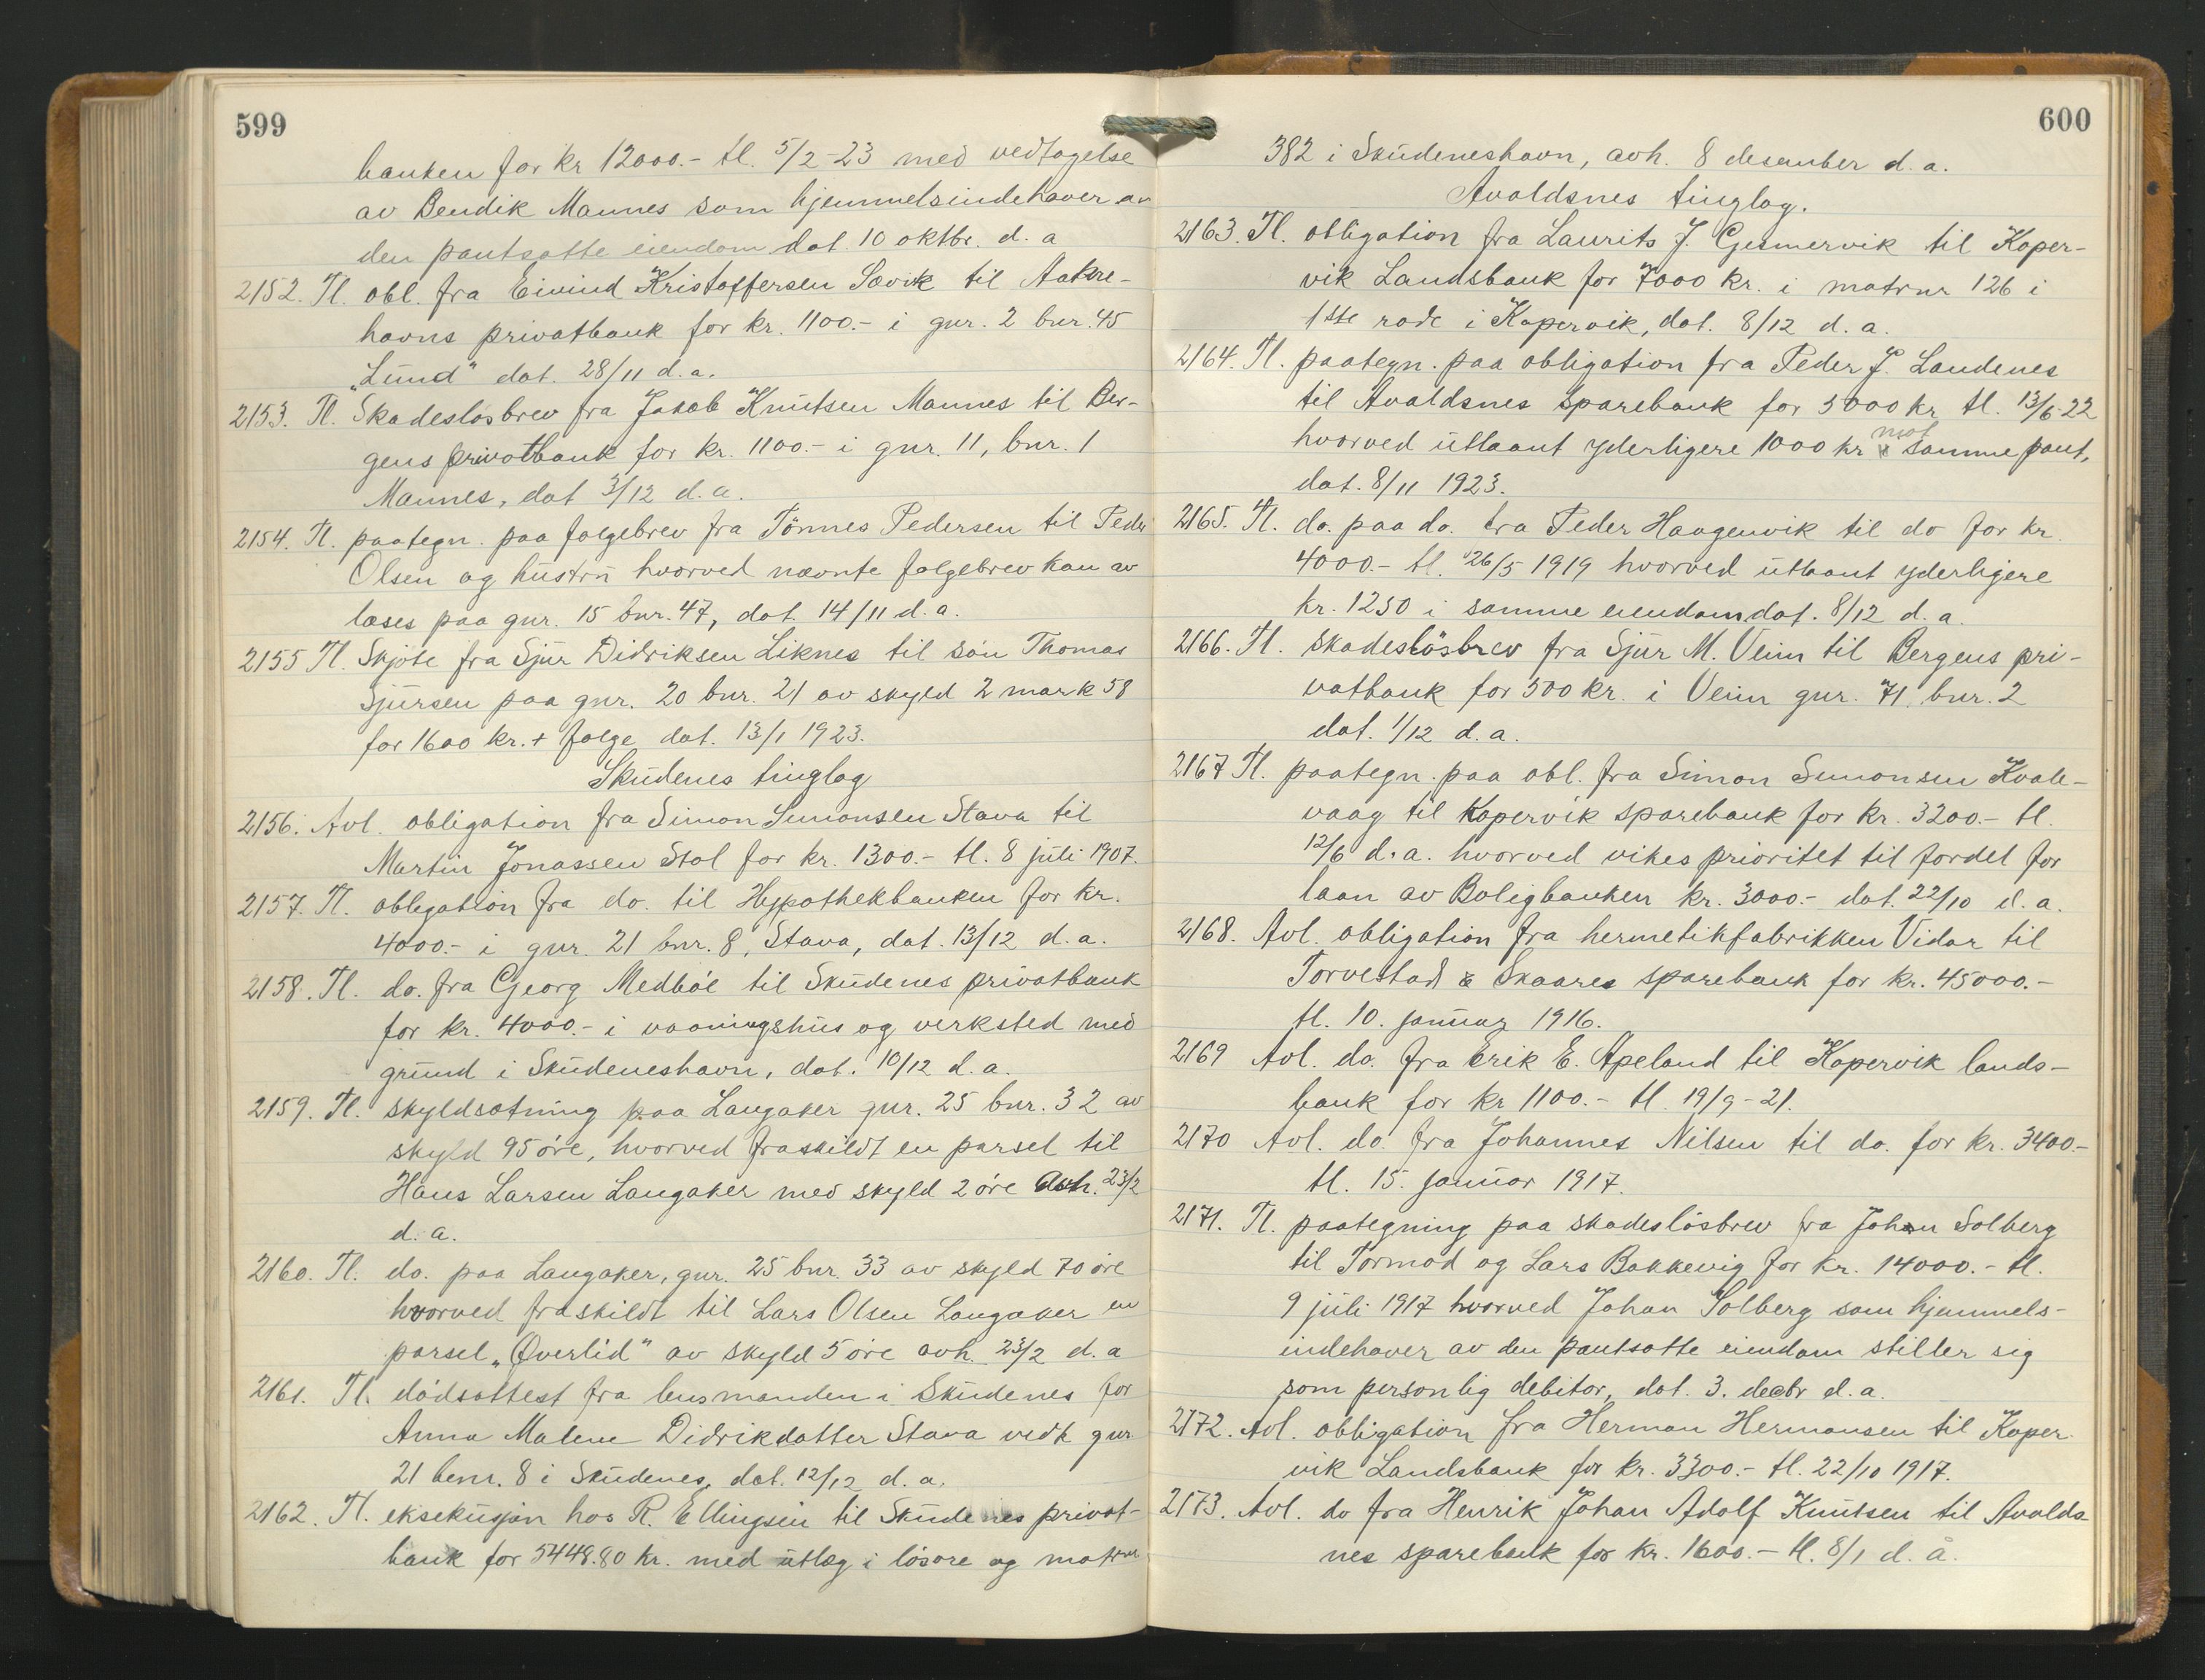 599
banken for kr 12000.- tl. 5/2-23 med vedtagelse
av Bendik Mannes som hjemmelsindehaver av
den pantsatte eiendom dat. 10 oktbr. d. a
2152. Tl. obl. fra Eivind Kristoffersen Sævik til Aakre-
havns privatbank for kr. 1100.- i gnr. 2 bnr. 45
„Lund" dat. 28/11 d. a.
2153. Tl. Skadesløsbrev fra Jakob Knutsen Mannes til Ber-
gens privatbank for kr. 1100.- i gnr. 11, bnr. 1
Mannes, dat 3/12 d. a.
2154. Tl. paategn. paa følgebrev fra Tönnes Pedersen til Peder
Olsen og hustru hvorved nævnte følgebrev kan av
læses paa gnr. 15 bnr. 47, dat. 14/11 d. a.
2155 Tl. Skjøte fra Sjur Didriksen Liknes til søn Thomas
Sjursen paa gnr. 20 bnr. 21 av skyld 2 mark 58
for 1600 kr. + følge dat. 13/1 1923.
Skudenes tinglag
2156. Avl. obligation fra Simon Simonsen Stava til
Martin Jonassen Stol for kr. 1300.- tl. 8 juli 1907.
2157. Tl. obligation fra do. til Hypothekbanken for kr.
4000.- i gnr. 21 bnr. 8, Stava, dat. 13/12 d. a.
2158. Tl. do. fra Georg Medbøe til Skudenes privatbank
for kr. 4000.- i vaaningshus og verksted med
grund i Skudeneshavn, dat. 10/12 d. a.
2159. Tl. skyldsætning paa Langaker gnr. 25 bnr. 32 av
skyld 95 øre, hvorved fraskildt en parsel til
Hans Larsen Langaker med skyld 2 øre avh. 23/2
d. a.
2160. Tl. do. paa Langaker, gnr. 25 bnr. 33 av skyld 70 øre
hvorved fraskildt til Lars Olsen Langaker en
parsel „Øverlid" av skyld 5 øre avh. 23/2 d. a
2161. Tl. dødsattest fra lensmanden i Skudenes for
Anna Malene Didrikdatter Stava vedk gnr
21 bnr. 8 i Skudenes, dat. 12/12 d. a.
2162. Tl. eksekusjon hos R. Ellingsen til Skudenes privat-
bank for 5448.80 kr. med utlæg i løsøre og matrnr
600
382 i Skudeneshavn, avh. 8 desember d. a.
Avaldsnes tinglag.
2163. Tl. obligation fra Laurits J. Gjemervik til Koper-
vik Landsbank for 7000 kr. i matrnr 126 i
1ste rode i Kopervik, dat. 8/12 d. a.
2164. Tl. paategn. paa obligation fra Peder J. Landenes
til Avaldsnes sparebank for 5000 kr tl. 13/6-22
hvorved utlaant yderligere 1000 kr mot samme pant,
dat. 8/11 1923.
2165. Tl. do. paa do. fra Peder Haagenvik til do for kr.
4000.- tl. 26/5 1919 hvorved utlaant yderligere
kr. 1250 i samme eiendom dat. 8/12 d. a.
2166. Tl. skadesløsbrev fra Sjur M. Veim til Bergens pri-
vatbank for 500 kr. i Veim gnr. 71 bnr. 2
dat. 1/12 d. a.
2167 Tl. paategn. paa obl. fra Simon Simonsen Kvale-
vaag til Kopervik sparebank for kr. 3200.- tl.
12/6 d. a. hvorved vikes prioritet til fordel for
laan av Boligbanken kr. 3000.- dat. 22/10 d. a.
2168. Avl. obligation fra hermetikfabrikken Vidar til
Torvestad & Skaares sparebank for kr. 45000.-
tl. 10. januar 1916.
2169 Avl. do. fra Erik E. Apeland til Kopervik lands-
bank for kr 1100.- tl. 19/9-21.
2170 Avl. do. fra Johannes Nilsen til do. for kr. 3400.-
tl. 15. januar 1917.
2171. Tl. paategning paa skadesløsbrev fra Johan Solberg
til Tormod og Lars Bakkevig for kr. 14000.- tl.
9 juli 1917 hvorved Johan Solberg som hjemmels-
indehaver av den pantsatte eiendom stiller sig
som personlig debitor, dat. 3. decbr d. a.
2172. Avl. obligation fra Herman Hermansen til Koper
vik Landsbank for kr. 3300.- tl. 22/10 1917.
2173. Avl. do fra Henrik Johan Adolf Knutsen til Avalds-
nes sparebank for kr. 1600.- tl. 8/1 d. å.